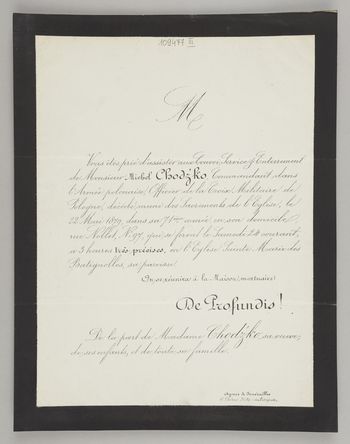 109477 III
M
Vous êtes prié d'assister aux Convoi, Service & Enterrement
de Monsieur Michel Chodźko Commandant dans
l'Armée polonaise, Officier de la Croix Militaire de
Pologne, décédé muni des Sacrements de l'Église, le
22 Mai 1879, dans sa 71me année en son domicile,
rue Nollet, No 97, qui se feront le Samedi 24 courant,
à 3 heures très précises, en l'Église Sainte Marie des
Batignolles, sa paroisse.
On se réunira à la Maison mortuaire.
De Profundis!
De la part de Madame Chodźko, sa veuve,
de ses enfants, et de toute sa famille.
Agence de Funérailles